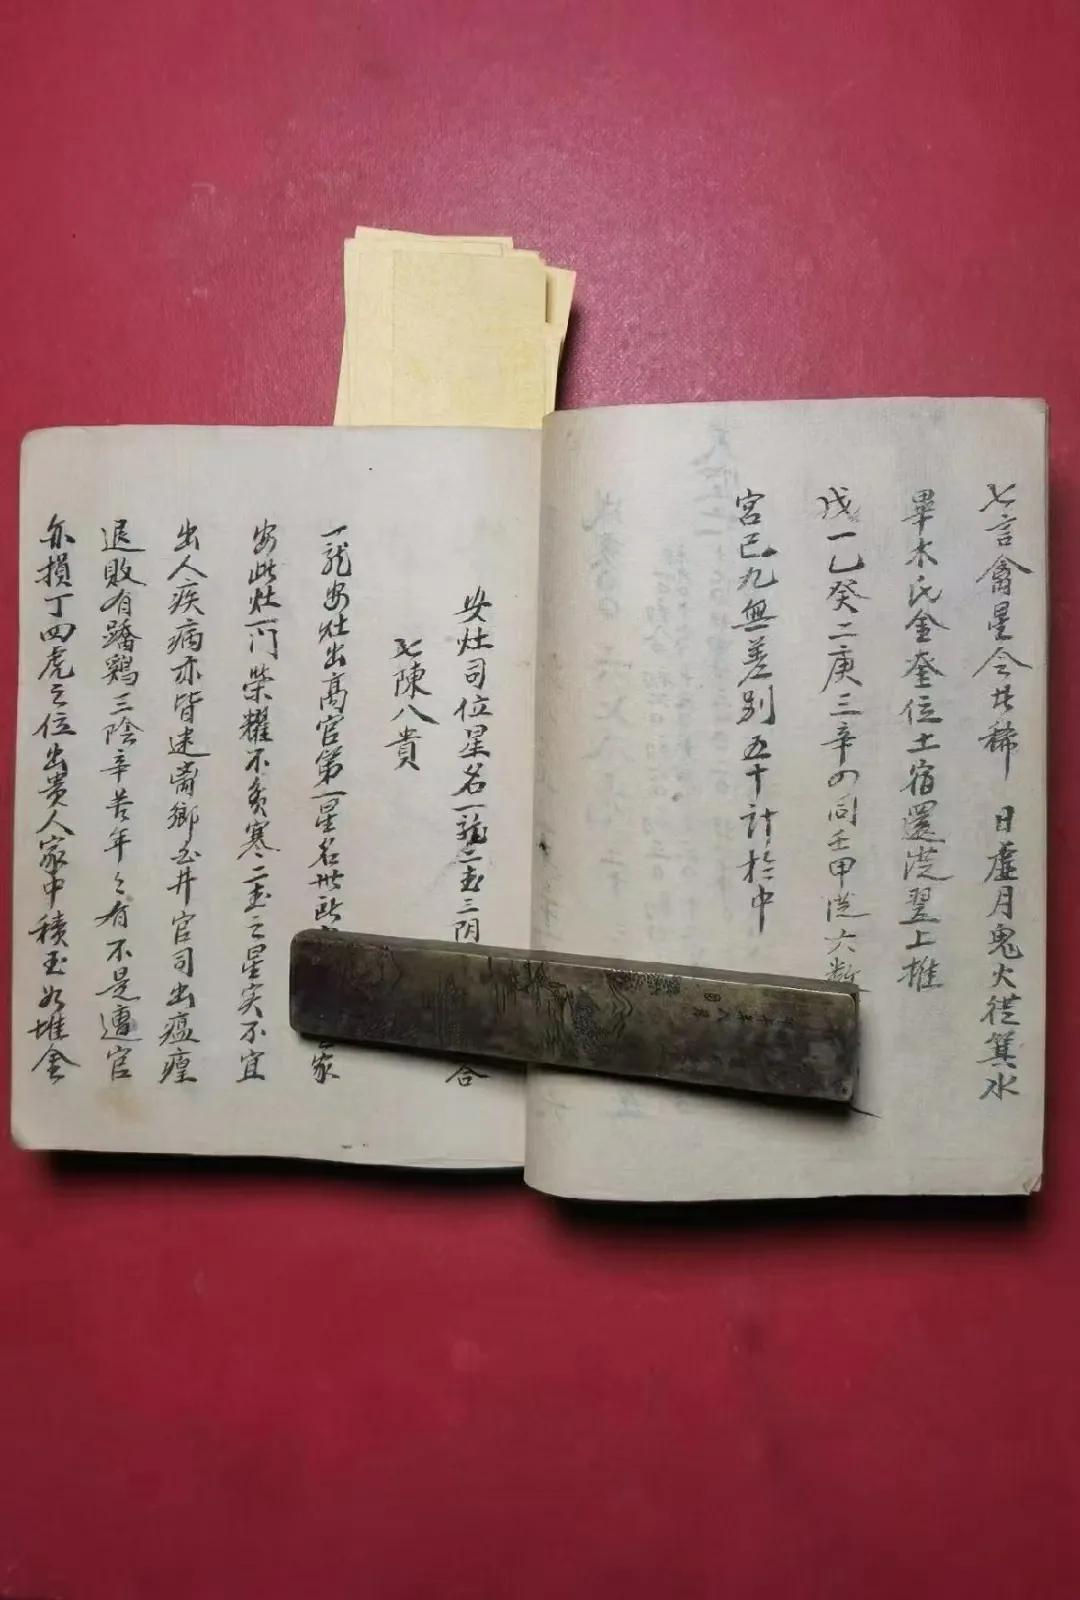 七言禽星今古稀 日虛月鬼火從箕水
畢木氐金奎位土宿還從翌上推
戊一乙癸二庚三辛四同壬甲從六數
宮己九無差別五十計於中
安灶司位星名一龍二玉三阴 合
七陳八貴
一龍安灶出高官第一星名 此 家
安此灶一门榮耀不 寒二玉之星实不宜
出人疾病亦皆迷 鄉 井官司出瘟瘟
退敗有 鷄三陰辛苦年々有不是遭官
亦損丁四虎之位出贵人家中積玉如堆金